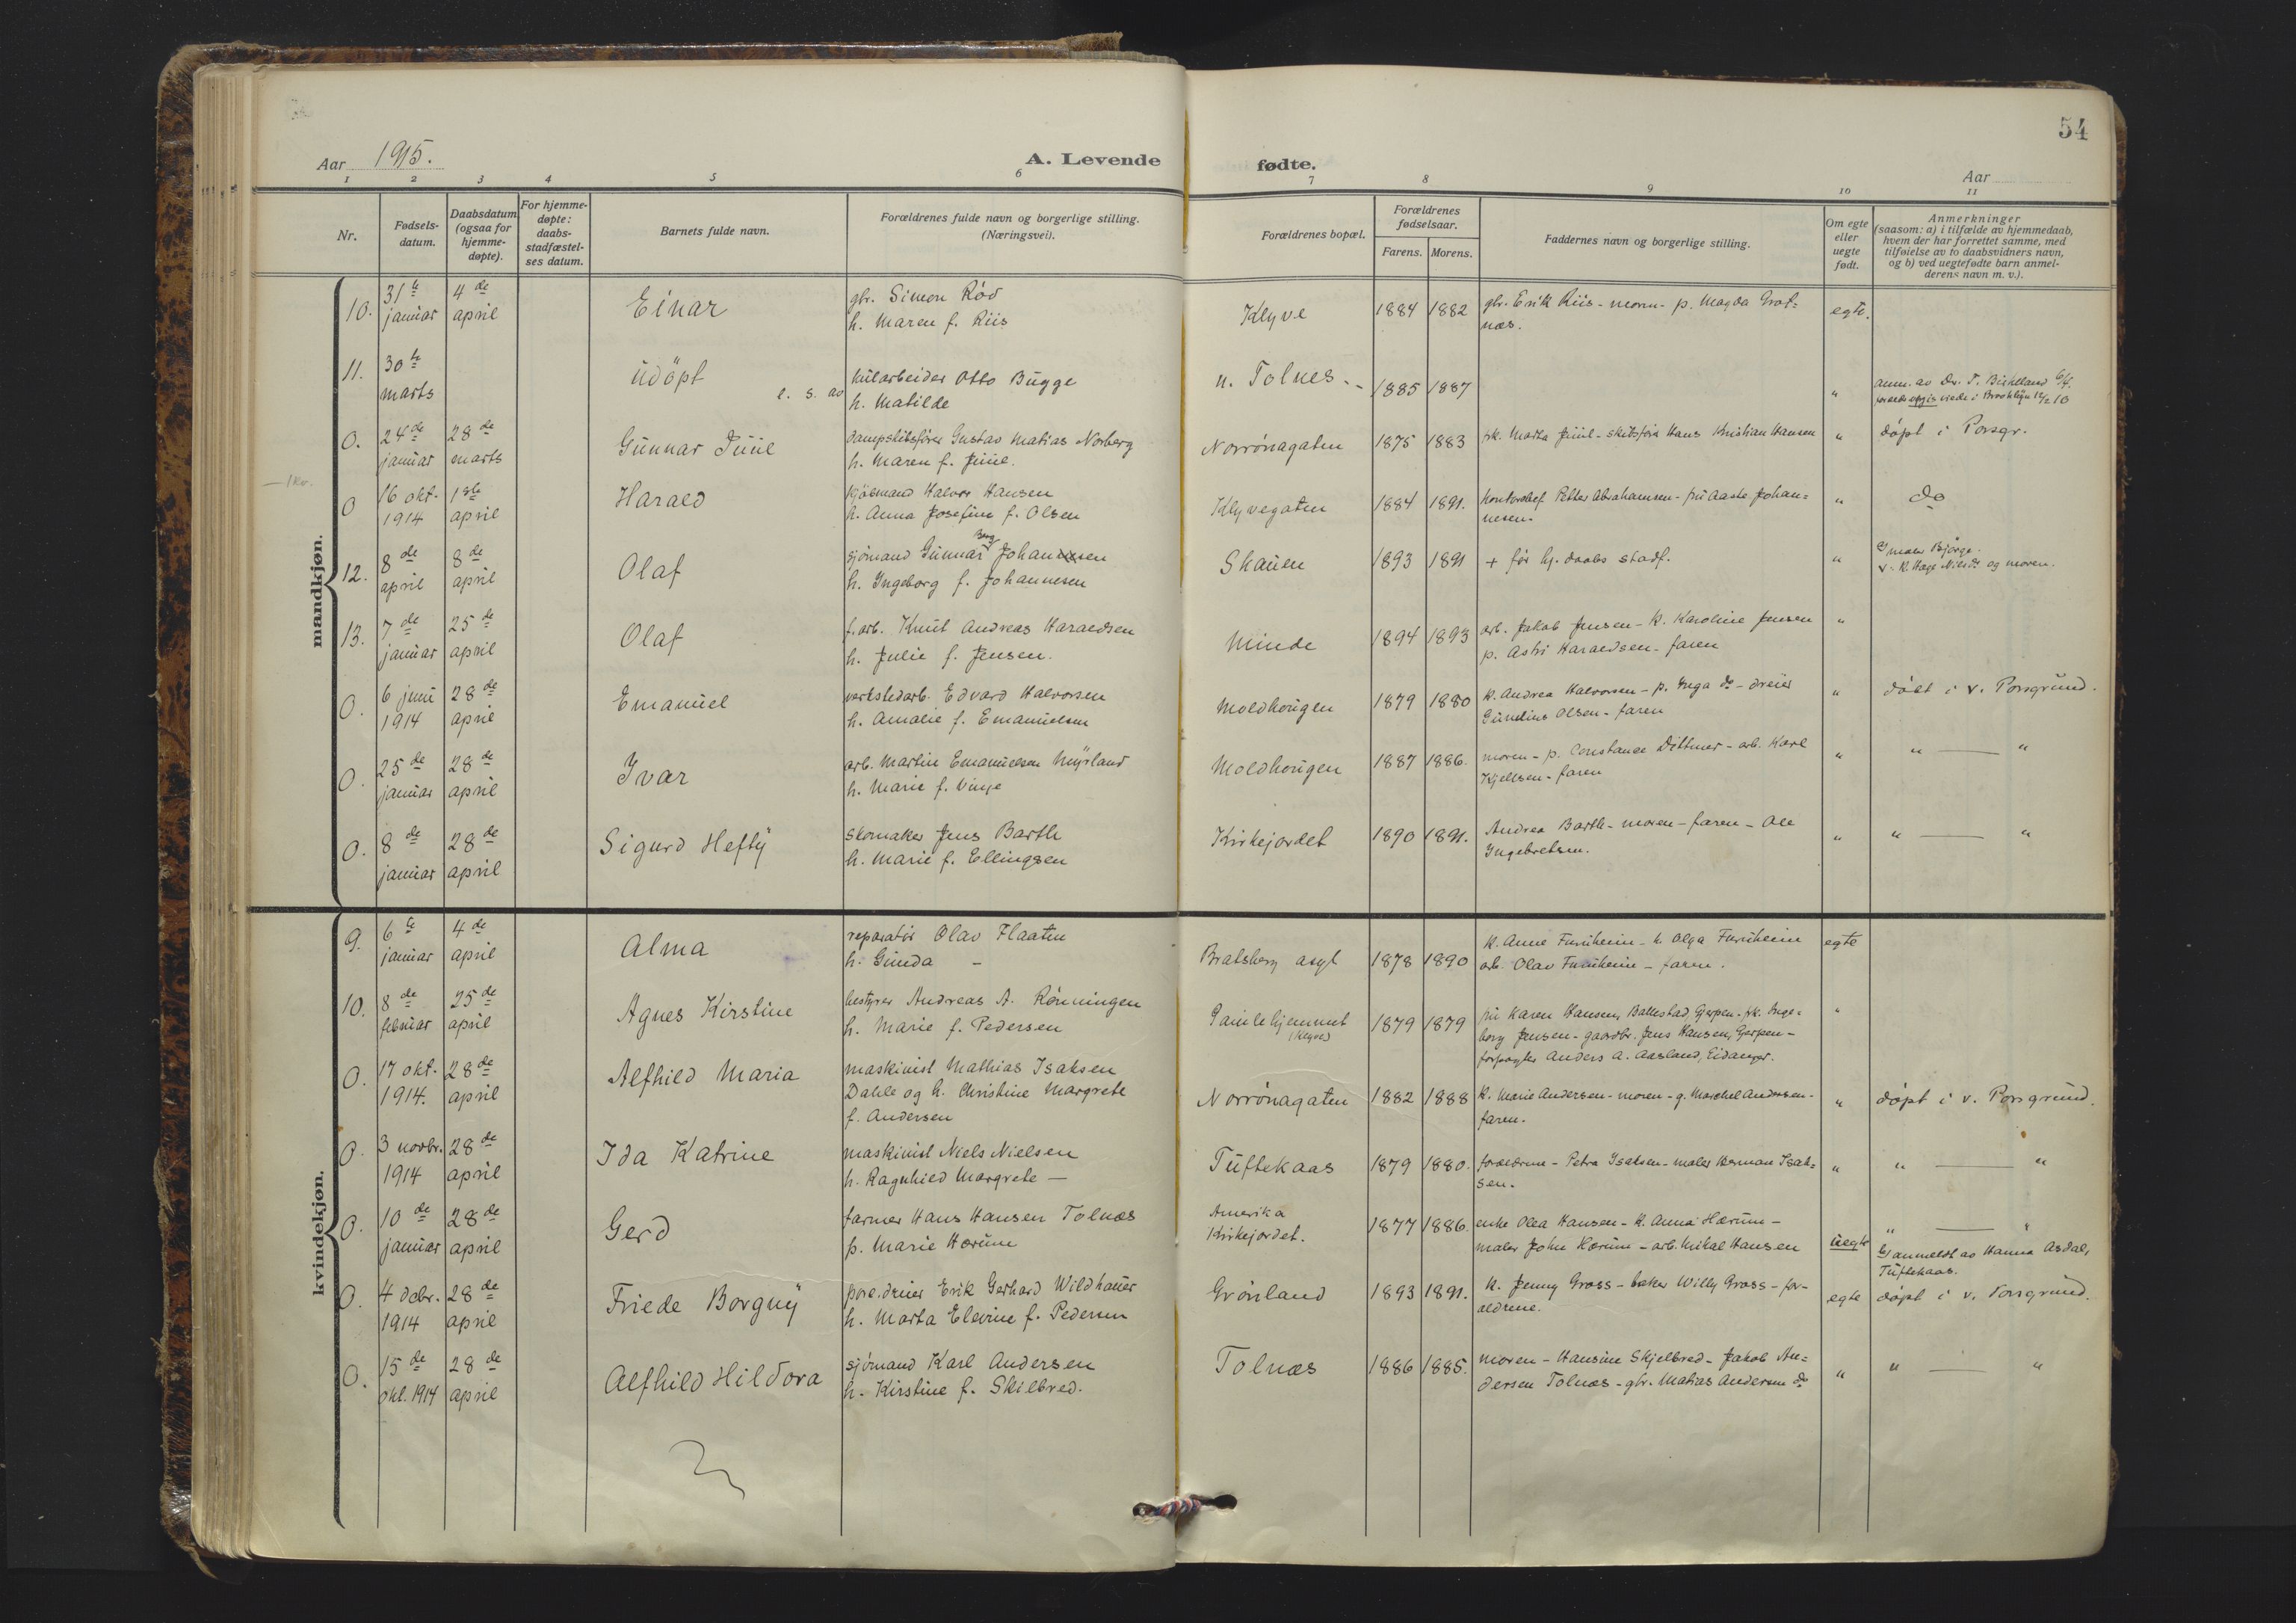 54
Aar 1915.
A. Levende fødte.
Aar
1 2 3 4 5 6 7 8 9 10 11
Nr.
Fødsels-
datum.
Daabsdatum
(ogsaa for
hjemme-
døpte).
For hjemme-
døpte:
daabs-
stadfæstel-
ses datum.
Barnets fulde navn.
Forældrenes fulde navn og borgerlige stilling.
(Næringsvei).
Forældrenes bopæl.
Forældrenes
fødselsaar.
Farens. Morens.
Faddernes navn og borgerlige stilling.
Om egte
eller
uegte
født.
Anmerkninger
(saasom: a) i tilfælde av hjemmedaab,
hvem der har forrettet samme, med
tilføielse av to daabsvidners navn,
og b) ved uegtefødte barn anmel-
derens navn m. v.).
mandkjøn.
10. 31te januar 4de april Einar gbr. Simon Rød
h. Maren f. Riis
Klyve 1884 1882 gbr. Erik Riis - moren - p. Magda Grot=
næs.
egte.
11. 30te marts udöpt e. s. av hularbeider Otto Bugge
h. Matilde
n. Tolnes 1885 1887 " anm. av Dr. T. Birkeland 6/4.
viede i Brooklyn 12/2 10
0. 24de januar 28de marts Gunnar Juul dampskibsfører Gustav Matias Norberg
h. Maren f. Juul.
Norrønagaten 1875 1883 frk. Marta Juul - skibsfører Hans Kristian Hansen " døpt i Porsgr.
0 16 okt. 1914 1ste april Harald kjøbmand Halvor Hansen
h. Anna Josefine f. Olsen
Klyvegaten 1884 1891. kontorchef Petter Abrahamsen - fru Aaste Johan=
nesen.
" do
12. 8de april 8de april Olaf sjømand Gunnar Berg Johansen
h. Ingeborg f. Johannesen
Skauen 1893 1891 + før hj. daabs stadf. "
og moren.
13. 7de januar 25de april Olaf f.arb. Knut Andreas Haraldsen
h. Julie f. Jensen.
Minde 1894 1893 arb. Jakob Jensen - k. Karoline Jensen
p. Astri Haraldsen - faren
"
0. 6 juni 1914 28de april Emanuel verkstedarb. Edvard Halvorsen
h. Amalie f. Emanuelsen
Moldhougen 1879 1880 k. Andrea Halvorsen - p. Inga do - dreier
Gunelius Olsen - faren
" døbt i V. Porsgrund.
0. 25de januar 28de april Ivar arb. Martin Emanuelsen Myrland
h. Marie f. Vinje
Moldhougen 1887 1886. moren - p. Constance Dittmer - arb. Karl
Kjellsen - faren
" " — "
0. 8de januar 28de april Sigurd Hefty skomaker Jens Barth
h. Marie f. Ellingsen
Kirkejordet 1890 1891. Andrea Barth - moren - faren - Ole
Ingebretsen.
" " — "
kvindekjøn.
9. 6te januar 4de april Alma reparatør Olav Flaaten
h. Gunda -
Bratsberg asyl 1878 1890 k. Anne Furuheim - k. Olga Furuheim
arb. Olav Furuheim - faren.
egte
10. 8de februar 25de april Agnes Kirstine bestyrer Andreas A. Rønningen
h. Marie f. Pedersen
Gamlehjemmet
(Klyve)
1879 1879 fru Karen Hansen, Ballestad, Gjerpen - frk. Inge=
borg Jensen - gaardbr. Jens Hansen, Gjerpen -
forpagter Anders A. Aasland, Eidanger.
"
0. 17 okt. 1914. 28de april Alfhild Maria maskinist Mathias Isaksen
Dahle og h. Christine Margrete
f. Andersen
Norrønagaten 1882 1888 k. Marie Andersen - moren - g. Andersen -
faren.
" døpt i V. Porsgrund.
0. 3 novbr. 1914 28de april Ida Katrine maskinist Niels Nielsen
h. Ragnhild Margrete —
Tuftekaas 1879 1880. forældrene - Petra Isaksen - maler Herman Isak=
sen.
" " — "
0. 10de januar 28de april Gerd farmer Hans Hansen Tolnæs
p. Marie Hærum
Amerika
Kirkejordet.
1877 1886. enke Olea Hansen - k. Anna Hærum -
maler John Hærum - arb. Mikal Hansen
uegte " — "
b) anmeldt av Hanna Asdal,
Tuftekaas.
0. 4 dcbr. 1914 28de april Friede Borguy porc.dreier Erik Gerhard Wildhauer
h. Marta Elevine f. Pedersen
Grönland 1893 1891. k. Jenny Gross - baker Willy Gross - for-
ældrene.
egte døpt i V. Porsgrund.
0. 15de okt. 1914 28de april Alfhild Hildora sjömand Karl Andersen
h. Kirstine f. Skilbred.
Tolnæs 1886 1885. moren - Hansine Skjelbred - Jakob An=
dersen Tolnæs - gbr. Matias Andersen do
" " — "